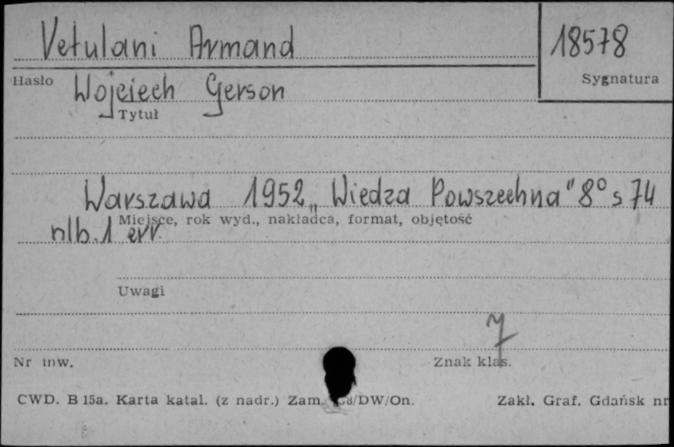 Vetulani Armand
18578
Hasło
Sygnatura
Wojciech Gerson
Tytuł
Warszawa 1952 „Wiedza Powszechna" 8° s 74
Miejsce, rok wyd., nakładca, format, objętość
nlb. 1 err.
Uwagi
7
Nr inw.
Znak klas.
CWD. B 15a. Karta katal. (z nadr.) Zam. /DW/On.
Zakł. Graf. Gdańsk nr